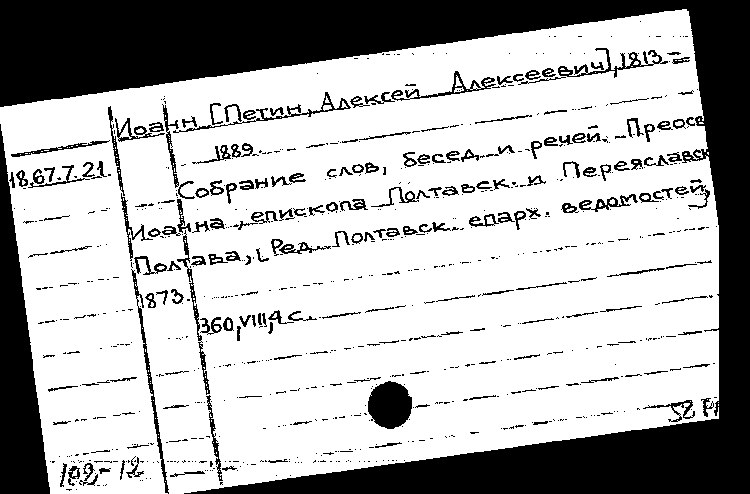 Иоанн [Петин, Алексей Алексеевич], 1813-
1889.
18.67.7.21.
Собрание слов, бесед и речей. Преосв
Иоанна, епископа Полтавск. и Переяславск
Полтава, [Ред. Полтавск. епарх. ведомостей]
1873.
360, VIII, 4 с.
102-12